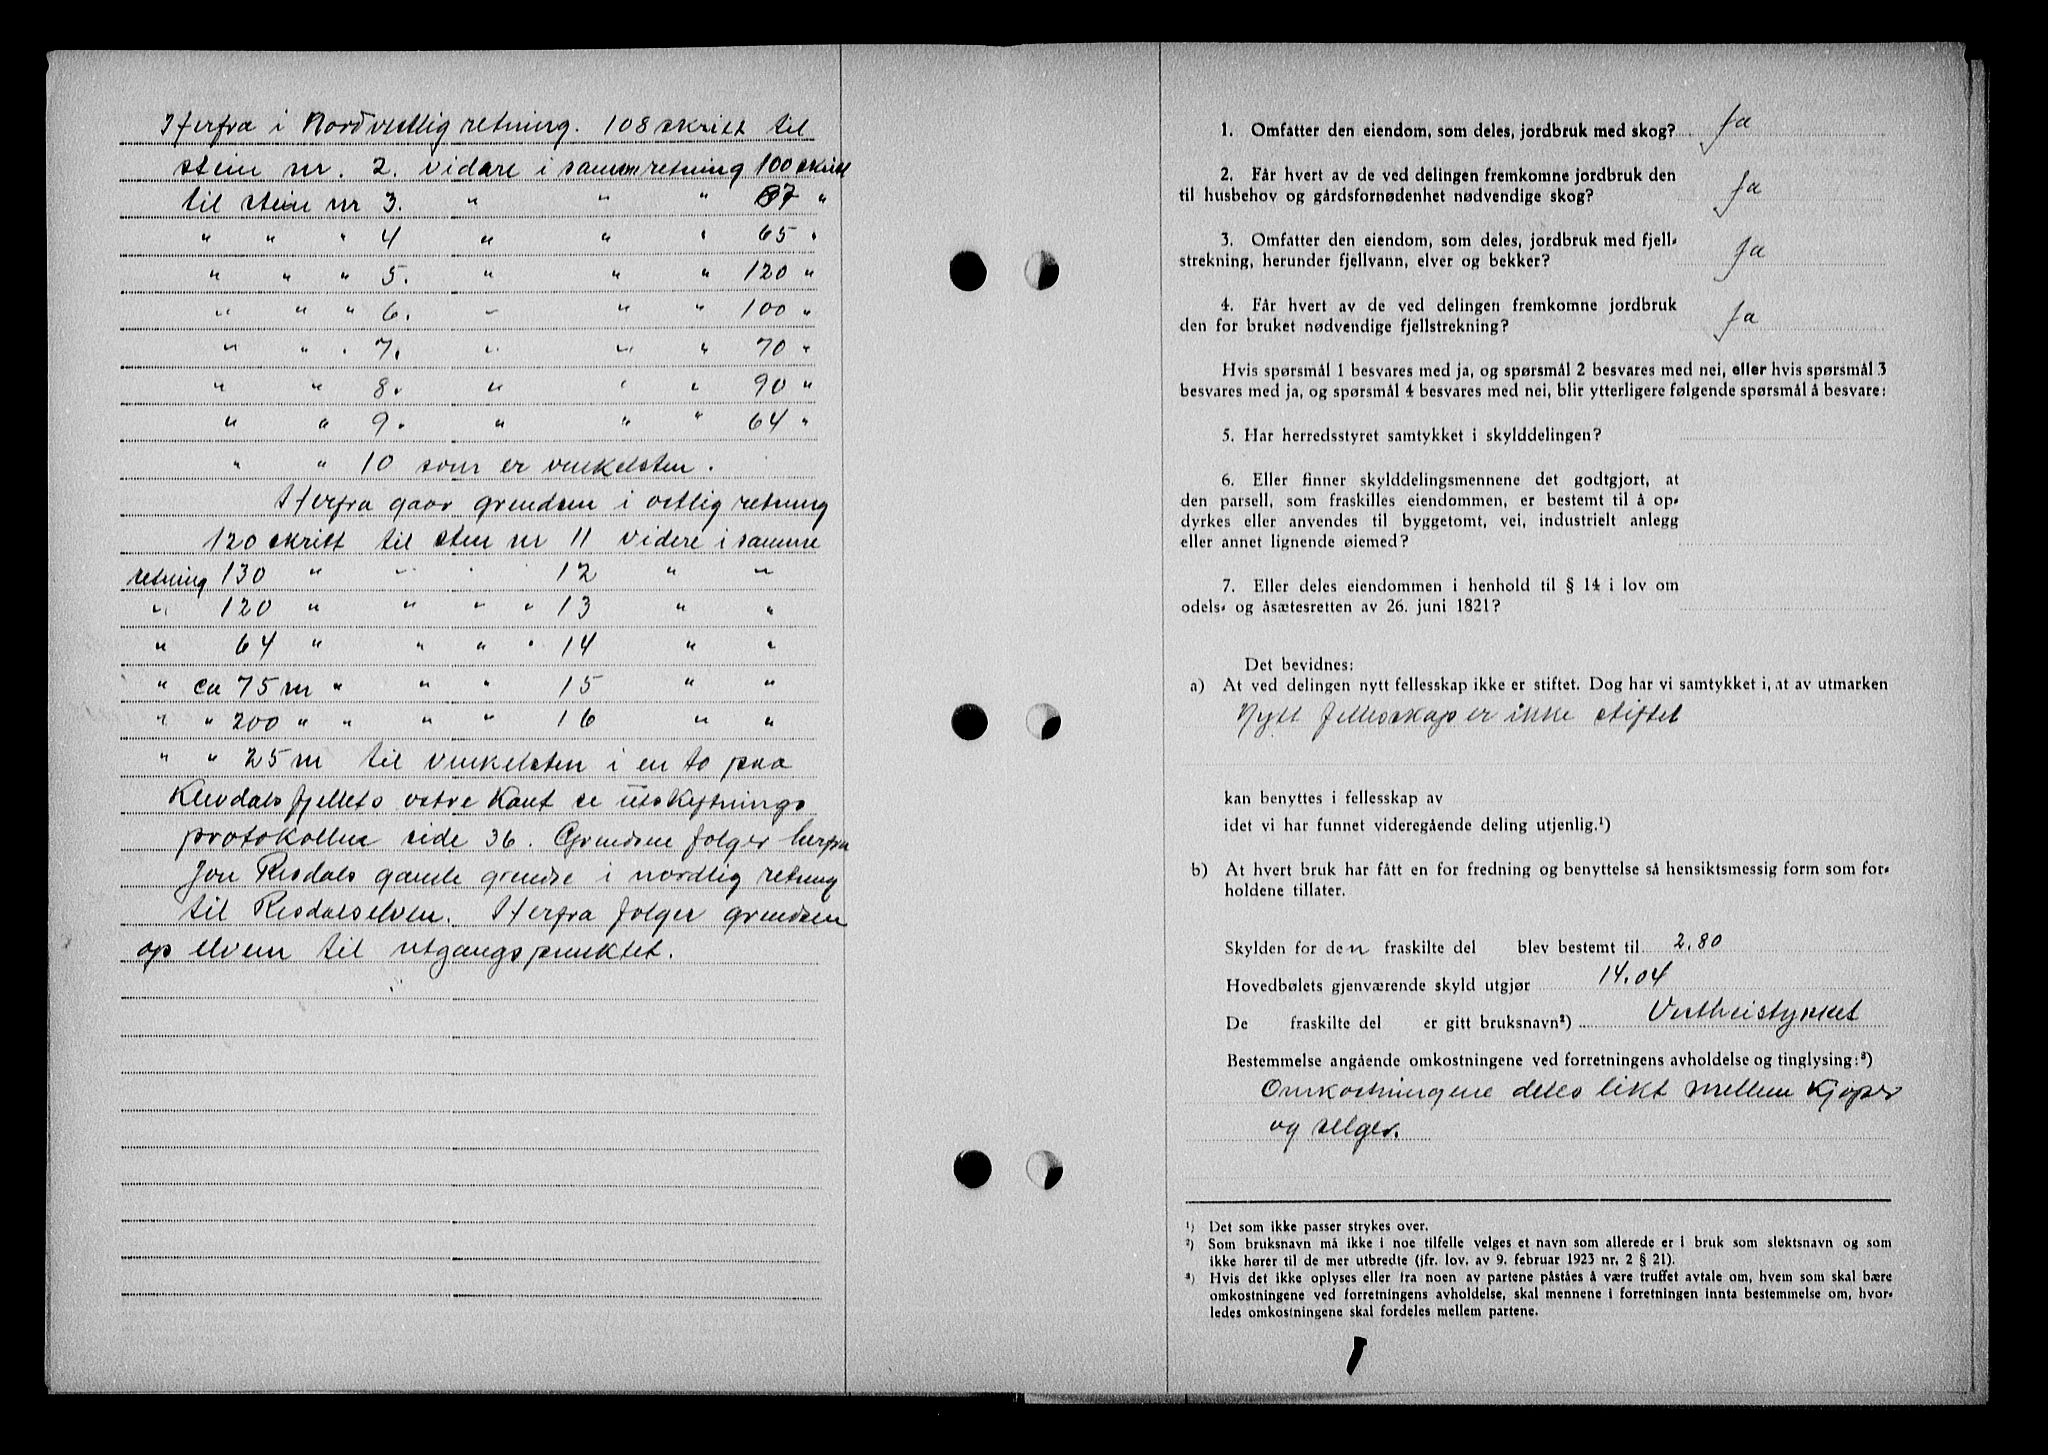 Herfra i Nordvestlig retning. 108 skritt til
stein nr. 2. vidare i samm retning 100 skritt
til stein nr 3. " " " 87 "
" " " 4 " " " 65 "
" " " 5. " " " 120 "
" " " 6. " " " 100 "
" " " 7. " " " 70 "
" " 8. " " " 90 "
" " 9. " " " 64 "
" " 10 som er vinkelsten.
Herfra gaar grendsen i vestlig retning
120 skritt til sten nr 11 videre i samme
retning 130 " " " 12 " "
" 120 " " " " 13 " "
" 64 " " " " 14 " "
" ca 75 m " " " 15 " "
" " 200 " " " " 16 " "
" " 25 m til vinkelsten i en to paa
Klevdalsfjellets vestre Kant se utskiftnings
protokollen side 36. Grendsen følger herfra
Jon Risdals gamle grendse i nordlig retning
til Risdalselven. Herfra følger grendsen
op elven til utgangspunktet.
1. Omfatter den eiendom, som deles, jordbruk med skog? Ja
2. Får hvert av de ved delingen fremkomne jordbruk den
til husbehov og gårdsfornødenhet nødvendige skog? Ja
3. Omfatter den eiendom, som deles, jordbruk med fjell-
strekning, herunder fjellvann, elver og bekker? Ja
4. Får hvert av de ved delingen fremkomne jordbruk
den for bruket nødvendige fjellstrekning? Ja
Hvis spørsmål 1 besvares med ja, og spørsmål 2 besvares med nei, eller hvis spørsmål 3
besvares med ja, og spørsmål 4 besvares med nei, blir ytterligere følgende spørsmål å besvare:
5. Har herredsstyret samtykket i skylddelingen?
6. Eller finner skylddelingsmennene det godtgjort, at
den parsell, som fraskilles eiendommen, er bestemt til å op-
dyrkes eller anvendes til byggetomt, vei, industrielt anlegg
eller annet lignende øiemed?
7. Eller deles eiendommen i henhold til § 14 i lov om
odels- og åsætesretten av 26. juni 1821?
Det bevidnes:
a) At ved delingen nytt fellesskap ikke er stiftet. Dog har vi samtykket i, at av utmarken
Nytt fellesskap er ikke stiftet
kan benyttes i fellesskap av
idet vi har funnet videregående deling utjenlig.¹)
b) At hvert bruk har fått en for fredning og benyttelse så hensiktsmessig form som for-
holdene tillater.
Skylden for den fraskilte del blev bestemt til 2.80
Hovedbølets gjenværende skyld utgjør 14.04
De fraskilte del er gitt bruksnavn²) Vestheistykket
Bestemmelse angående omkostningene ved forretningens avholdelse og tinglysing:³)
Omkostningene deles likt mellem Kjøper
og selger.
¹) Det som ikke passer strykes over.
²) Som bruksnavn må ikke i noe tilfelle velges et navn som allerede er i bruk som slektsnavn og som
ikke hører til de mer utbredte (jfr. lov. av 9. februar 1923 nr. 2 § 21).
³) Hvis det ikke oplyses eller fra noen av partene påståes å være truffet avtale om, hvem som skal bære
omkostningene ved forretningens avholdelse, skal mennene i forretningen innta bestemmelse om, hvor-
ledes omkostningene skal fordeles mellem partene.